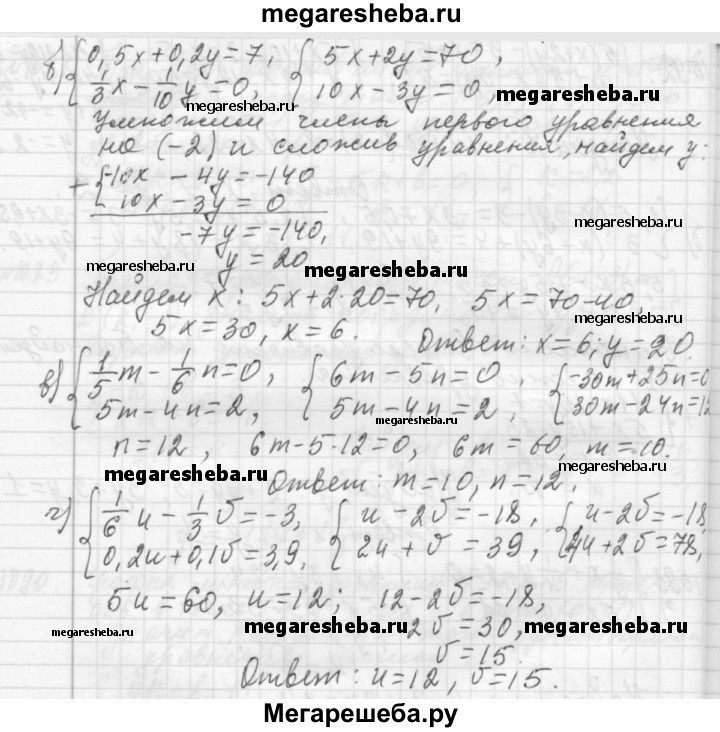 megaresheba.ru
б) { 0,5x+0,2y=7, { 5x+2y=70,
1/3x - 1/10y=0, 10x-3y=0,
megaresheba.ru megaresheba.ru
Умножим члены первого уравнения
на (-2) и сложив уравнения, найдем y:
+ { -10x - 4y = -140
10x - 3y = 0
megaresheba.ru
-7y = -140,
y = 20
megaresheba.ru megaresheba.ru
Найдем x: 5x+2·20=70, 5x=70-40,
megaresheba.ru
5x=30, x=6.
Ответ: x=6; y=20.
megaresheba.ru
в) { 1/5m - 1/6n=0, { 6m-5n=0, { -30m+25n=0
5m-4n=2, 5m-4n=2, 30m-24n=12
megaresheba.ru
n=12, 6m-5·12=0, 6m=60, m=10.
megaresheba.ru megaresheba.ru
Ответ: m=10, n=12.
г) { 1/6u - 1/3v=-3, { u-2v=-18, { u-2v=-18,
0,2u+0,1v=3,9, 2u+v=39, 4u+2v=78,
5u=60, u=12; 12-2v=-18,
megaresheba.ru megaresheba.ru 2v=30, megaresheba.ru
v=15.
Ответ: u=12, v=15.
Мегарешеба.ру